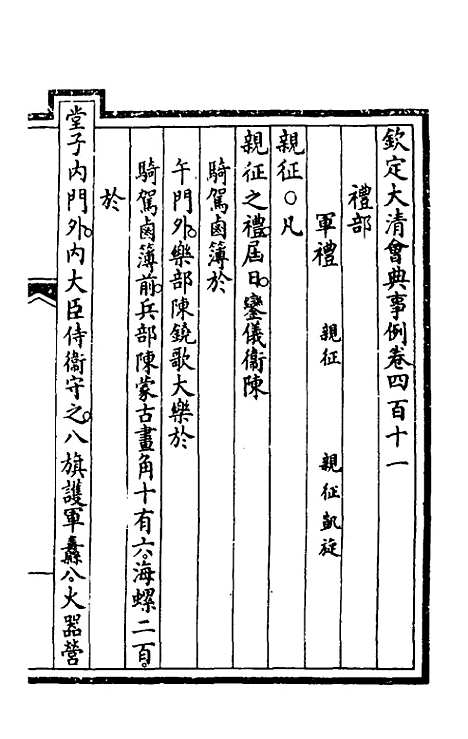 欽定大清會典事例卷四百十一
禮部
軍禮 親征 親征凱旋
親征○凡
親征之禮。屆日。鑾儀衞陳
騎駕鹵簿於
午門外。樂部陳鐃歌大樂於
騎駕鹵簿前。兵部陳蒙古畫角十有六。海螺二百。
於
堂子內門外。內大臣侍衞守之。八旗護軍纛八。火器營